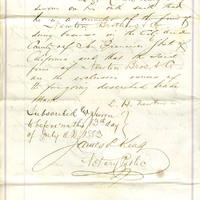 is a member of the firm
of Newton Brothers &
doing business in the City and
County of San Francisco State of
California and that the said
Newton Bros. & Co.
are the exclusive owners of
the foregoing described trade
mark
L. H. Newton
Subscribed & Sworn
to before me this 13th day
of July A.D. 1883
James L. King
Notary Public